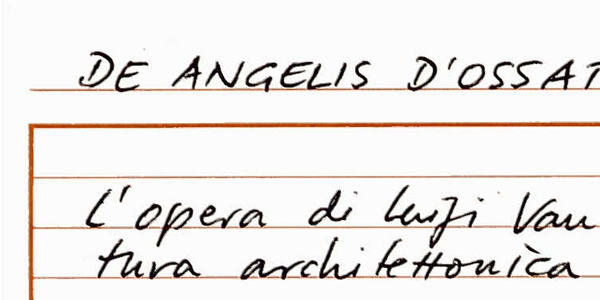 DE ANGELIS D'OSSAT
L'opera di Luigi Van
tura architettonica